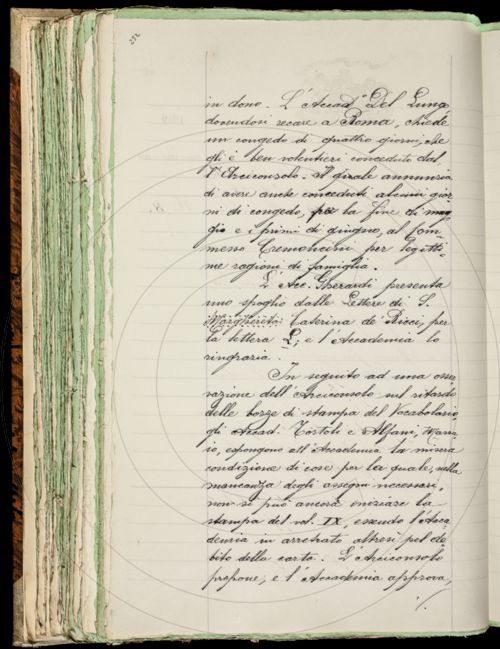 252
in dono. L'Accad.º Del Lungo,
dovendosi recare a Roma, chiede
un congedo di quattro giorni, che
gli è ben volentieri conceduto dal
l'Arciconsolo. Il quale annunzia
di avere anche conceduti alcuni gior
ni di congedo, per la fine di mag
gio e i primi di giugno, al Com-
messo Cremoncini per legitti-
me ragioni di famiglia.
L'Acc. Gherardi presenta
uno spoglio dalle Lettere di S.
Caterina de Ricci, per
la lettera L; e l'Accademia lo
ringrazia.
In seguito ad una osser
vazione dell'Arciconsolo sul ritardo
delle bozze di stampa del Vocabolario,
gli Accad. Tortoli e Alfani,
espongono all'Accademia la misera
condizione di cose per la quale, nella
mancanza degli assegni necessari,
non si può ancora iniziare la
stampa del vol. IX, essendo l'Acca-
demia in arretrato altresì pel de
bito della carta. L'Arciconsolo
propone, e l'Accademia approva,
./.